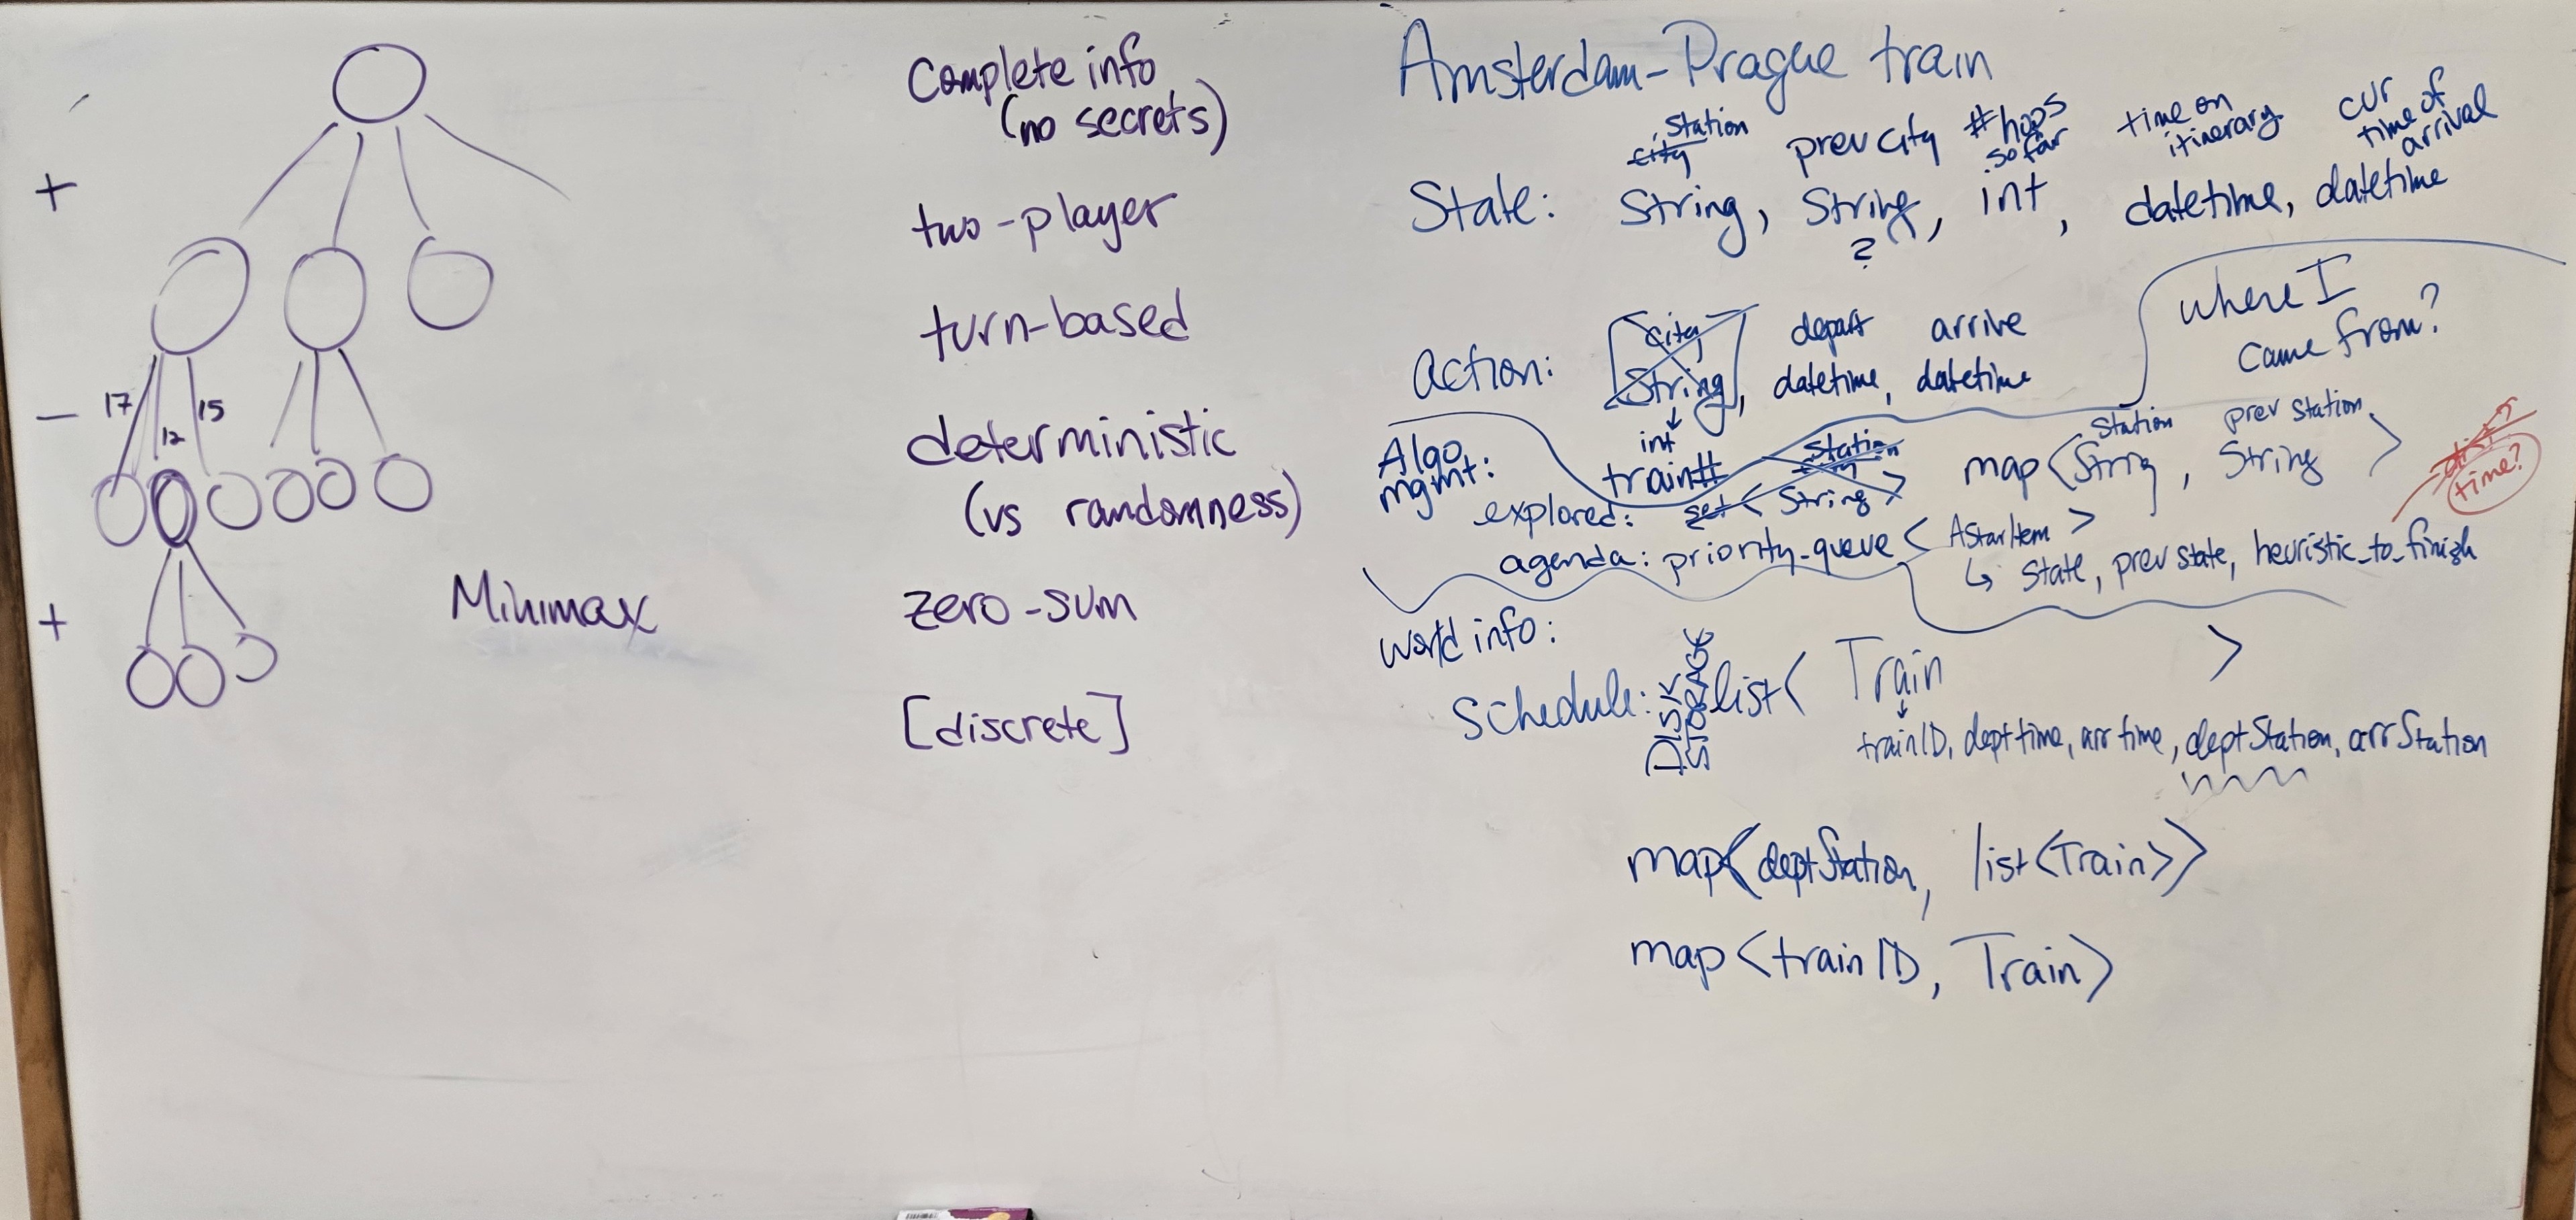 +
−
17
12
15
+
Minimax
Complete info
(no secrets)
two-player
turn-based
deterministic
(vs randomness)
zero-sum
[discrete]
Amsterdam-Prague train
station
city
prev city
#hops
so far
time on
itinerary
cur
time of
arrival
State: String, String, int, datetime, datetime
?
where I
came from?
city
depart
arrive
Action: String, datetime, datetime
int
train#
Algo
mgmt:
station
city
station
prev station
explored: set<String> map<String, String>
dist?
time?
agenda: priority-queue<AStarItem>
↳ State, prev state, heuristic_to_finish
world info:
Schedule: list< Train >
trainID, dept time, arr time, deptStation, arrStation
map<deptStation, list<Train>>
map<trainID, Train>